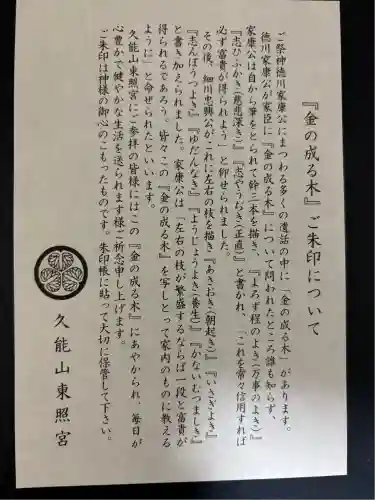 『金の成る木』ご朱印について
ご祭神徳川家康公にまつわる多くの遺話の中に「金の成る木」があります。
徳川家康公が家臣に『金の成る木』について問われたところ誰も知らず、
家康公は自から筆をとられて幹三本を描き、『よろず程のよき(万事のよき)』
『志ひふかき(慈悲深き)』『志やうぢき(正直)』と書かれ、「これを常々信用すれば
必ず富貴が得られよう」と仰せられました。
その後、細川忠興公がこれに左右の枝を描き『あさおき(朝起き)』『いさぎよき』
『志んぼうつよき』『ゆだんなき』『ようじょうよき(養生)』『かないむつましき』
と書き加えられました。家康公は「左右の枝が繁盛するならば一段と富貴が
得られるであろう、皆々この『金の成る木』を写しとって家内のものに教える
ように」と命ぜられたといいます。
久能山東照宮にご参拝の皆様にはこの『金の成る木』にあやかられ、毎日が
心豊かで健やかな生活を送られます様ご祈念申し上げます。
ご朱印は神様の御心のこもったものです。朱印帳に貼って大切に保管して下さい。
久能山東照宮